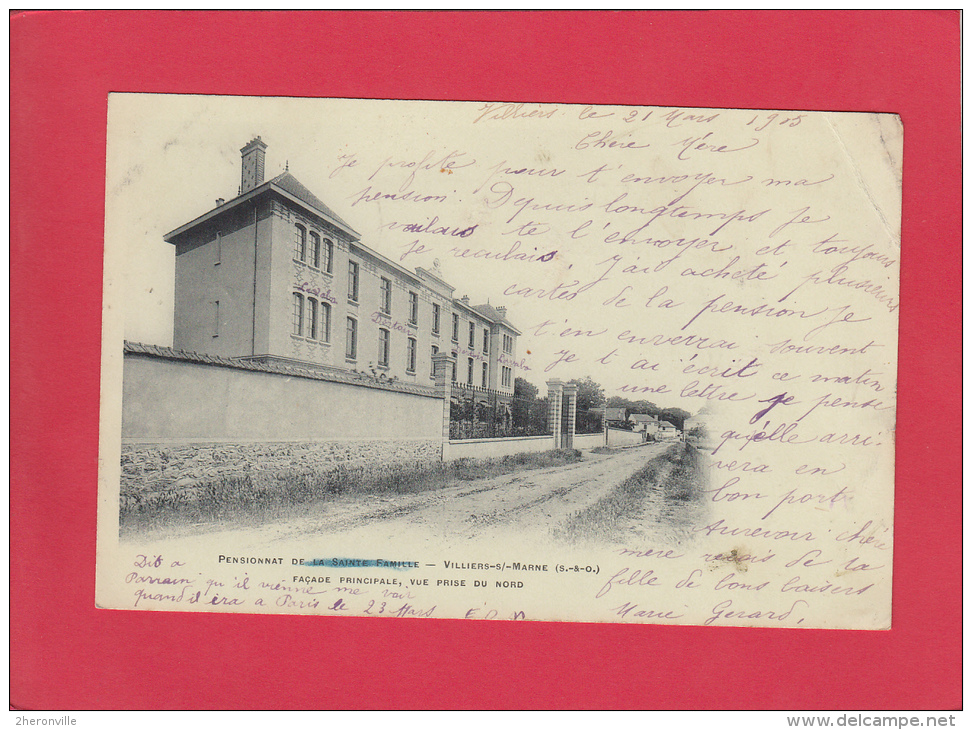 Villiers le 21 Mars 1915
Chère Mère
Je profite pour t envoyer ma
pension. Depuis longtemps Je
voilais te l'envoyer et toujours
Je reculais, J'ai acheté plusieurs
cartes de la pension Je
t'en enverrai souvent
Je t ai écrit ce matin
une lettre Je pense
qu'elle arri-
vera en
bon port
Aurevoir chère
mère reçois de ta
fille de bons baisers
Marie Gerard,
PENSIONNAT DE LA SAINTE FAMILLE — VILLIERS-S/-MARNE (S.-&-O.)
FAÇADE PRINCIPALE, VUE PRISE DU NORD
Dit a
Parrain qu'il vienne me voir
quand il ira a Paris le 23 Mars
2heronville
www.delcampe.net